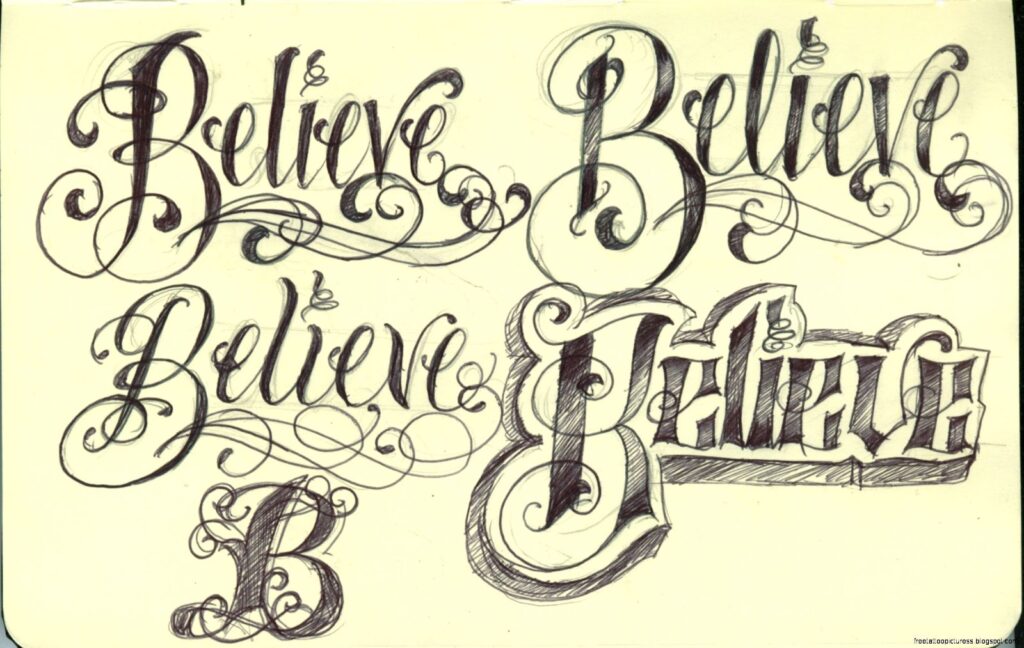 Believe
Believe
Believe
Believe
B
freetattoopicturess.blogspot.com